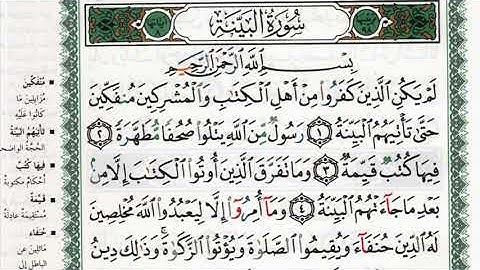 سُورَةُ البَيِّنَةِ
بِسْمِ اللَّهِ الرَّحْمَٰنِ الرَّحِيمِ
لَمْ يَكُنِ الَّذِينَ كَفَرُوا مِنْ أَهْلِ الْكِتَٰبِ وَالْمُشْرِكِينَ مُنفَكِّينَ
حَتَّىٰ تَأْتِيَهُمُ الْبَيِّنَةُ ١ رَسُولٌ مِّنَ اللَّهِ يَتْلُوا صُحُفًا مُّطَهَّرَةً ٢
فِيهَا كُتُبٌ قَيِّمَةٌ ٣ وَمَا تَفَرَّقَ الَّذِينَ أُوتُوا الْكِتَٰبَ إِلَّا مِنۢ
بَعْدِ مَا جَآءَتْهُمُ الْبَيِّنَةُ ٤ وَمَآ أُمِرُوٓا إِلَّا لِيَعْبُدُوا اللَّهَ مُخْلِصِينَ
لَهُ الدِّينَ حُنَفَآءَ وَيُقِيمُوا الصَّلَوٰةَ وَيُؤْتُوا الزَّكَوٰةَ ۚ وَذَٰلِكَ دِينُ
مُنفَكِّينَ
مُزَايِلِينَ مَا
كَانُوا عَلَيْهِ
تَأْتِيَهُمُ الْبَيِّنَةُ
الحُجَّةُ الواضِحَ
فِيهَا كُتُبٌ
أَحْكَامٌ مَكْتُوبَةٌ
قَيِّمَةٌ
مُسْتَقِيمَةٌ عَادِلَةٌ
حُنَفَاءَ
مَائِلِينَ عَنِ
البَاطِلِ إِلى